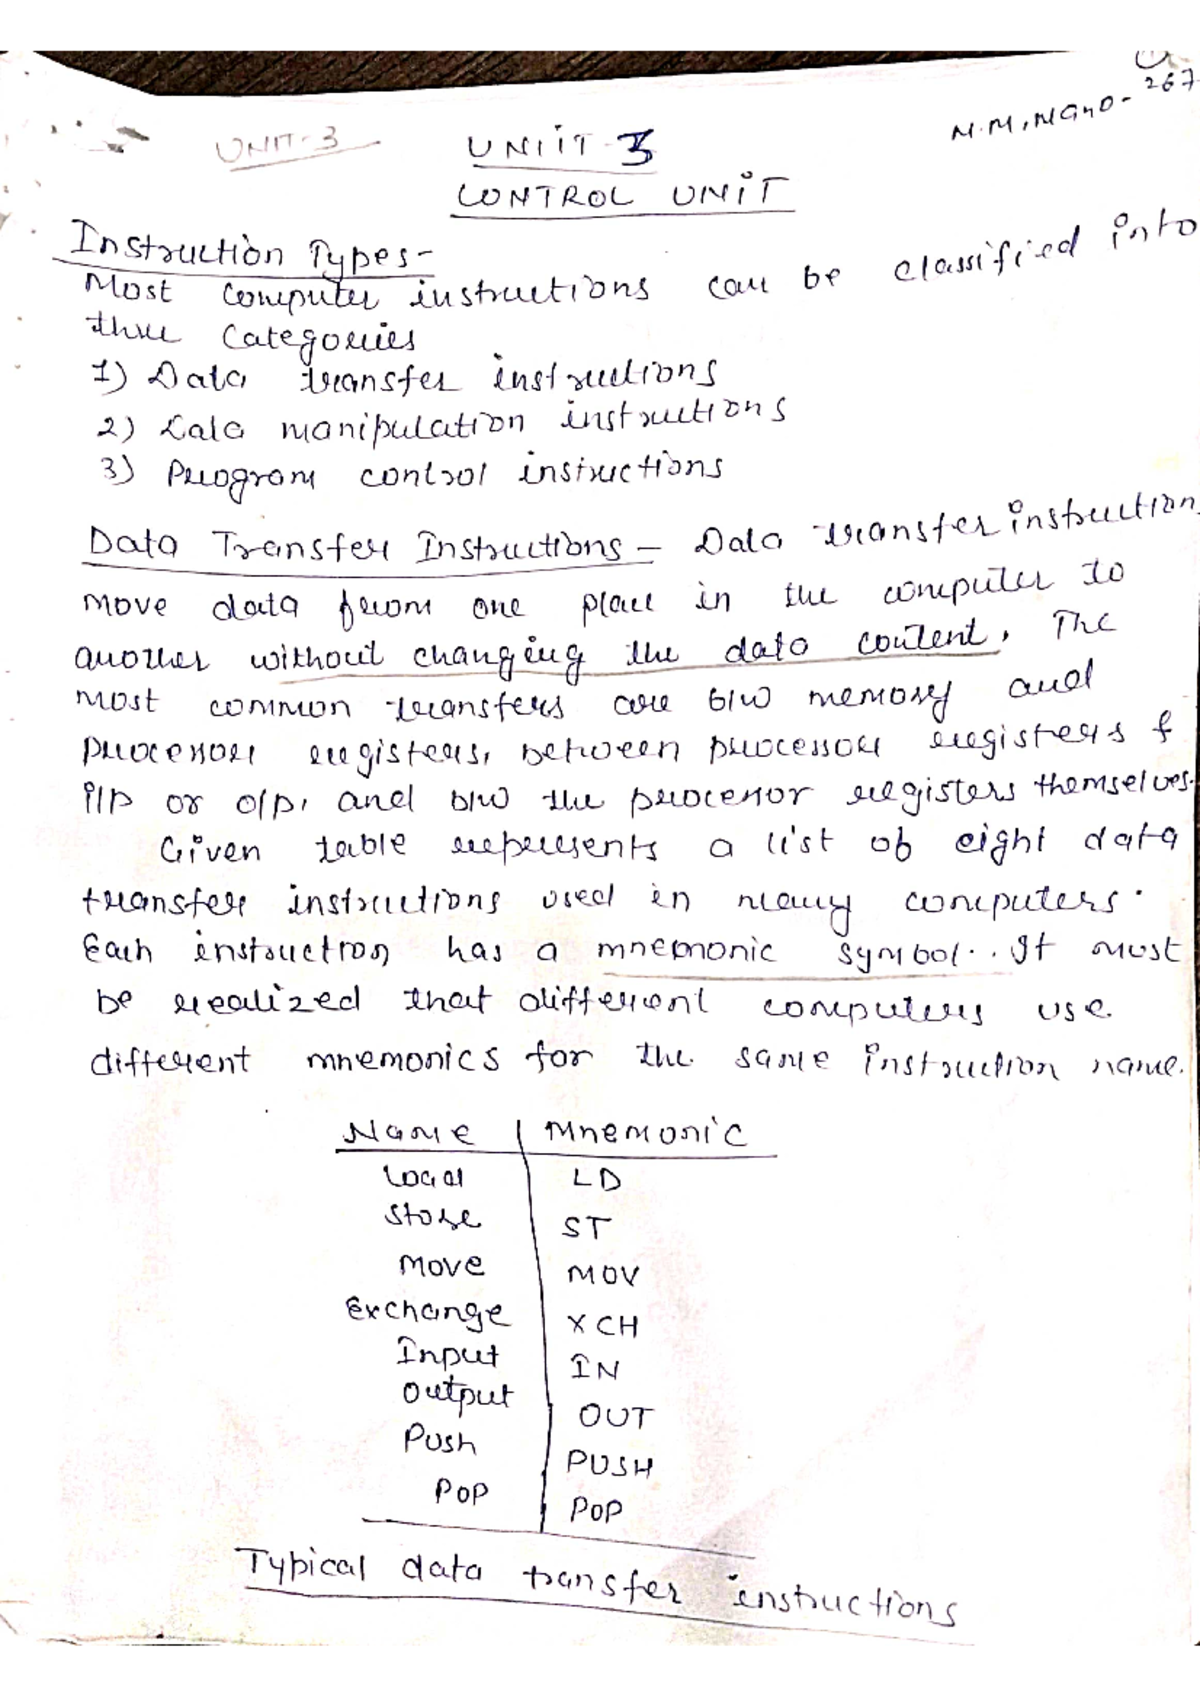 267
M.M. Mano-
UNIT-3
UNIIT-3
CONTROL UNIT
Instruction Types-
Most computer instructions can be classified into
three categories
1) Data transfer instructions
2) Data manipulation instructions
3) Program control instructions
Data Transfer Instructions - Data transfer instruction
move data from one place in the computer to
another without changing the data content. The
most common transfers are b/w memory and
processor registers, between processor registers &
i/p or o/p, and b/w the processor registers themselves.
Given table represents a list of eight data
transfer instructions used in many computers.
Each instruction has a mnemonic symbol. It must
be realized that different computers use
different mnemonics for the same instruction name.
Name | Mnemonic
Load LD
Store ST
Move MOV
Exchange XCH
Input IN
Output OUT
Push PUSH
POP POP
Typical data transfer instructions